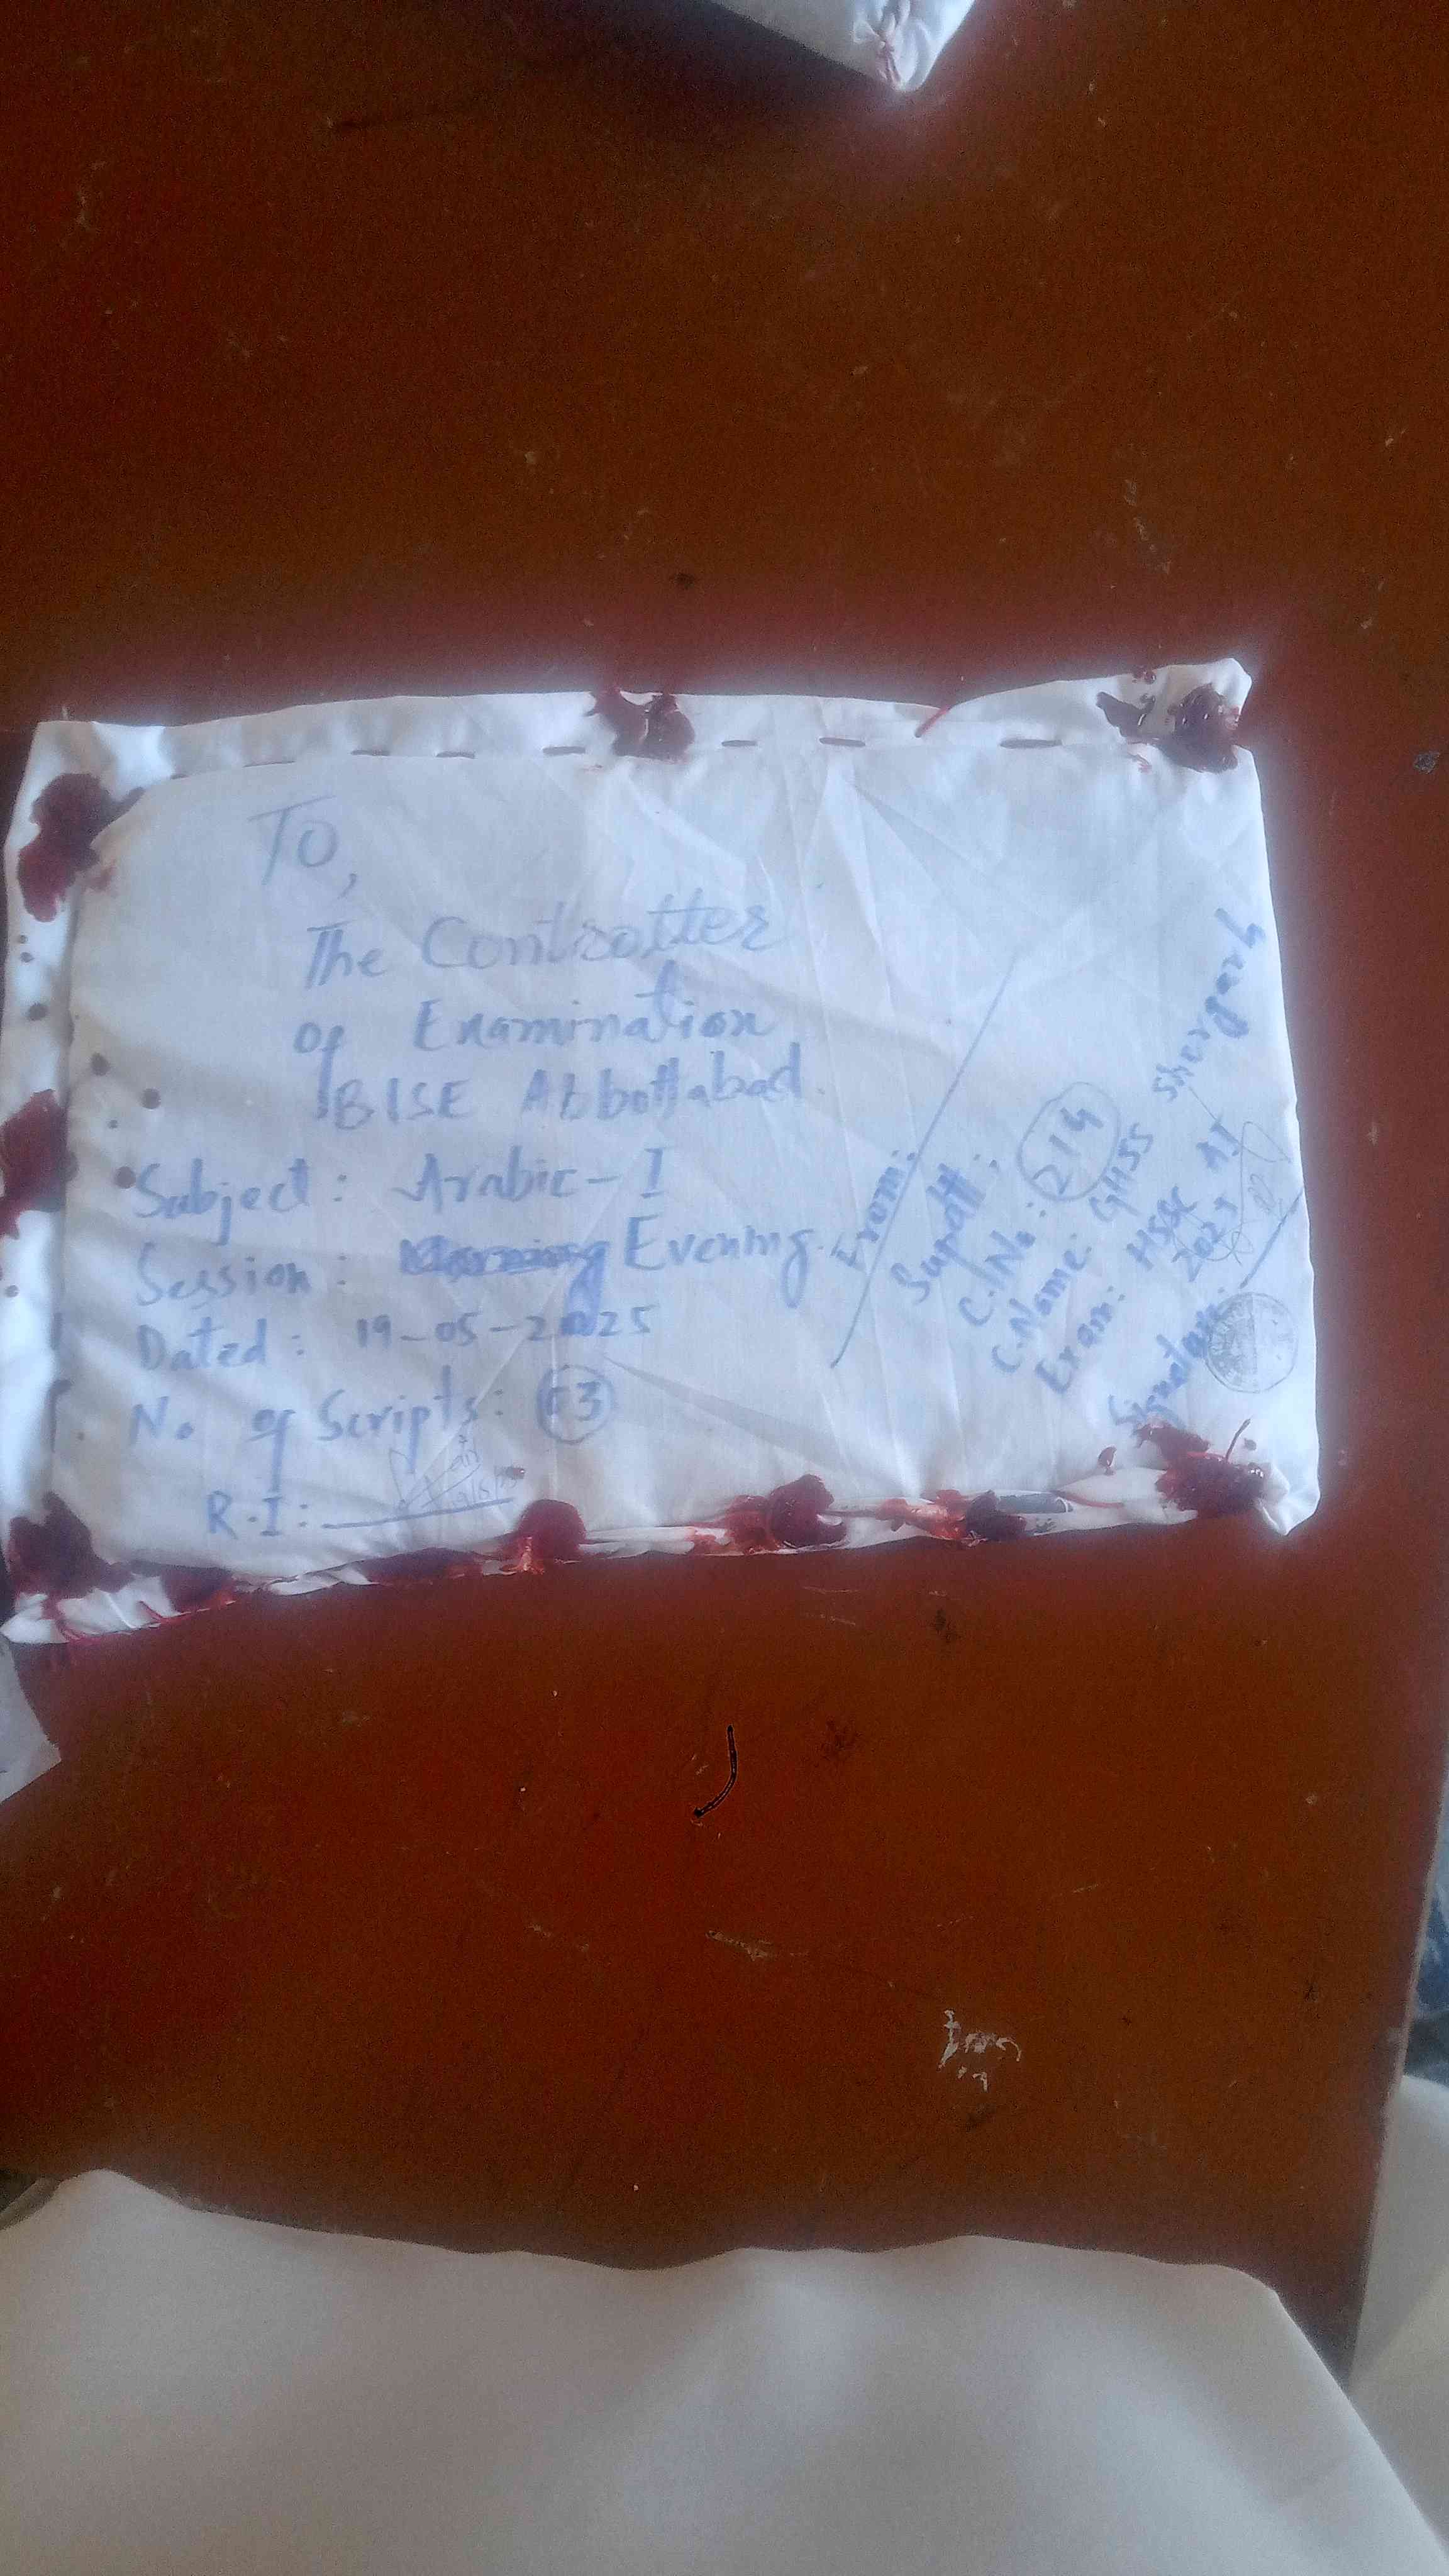 To,
The Controller
of Examination
BISE Abbottabad.
Subject: Arabic-I
Session: Morning Evening.
Dated: 19-05-2025
No of Scripts: 03
R.I:
From:
Supdtt:
C.No: 214
C.Name: GHSS Shergarh
Exam: HSSC AI
Signature: